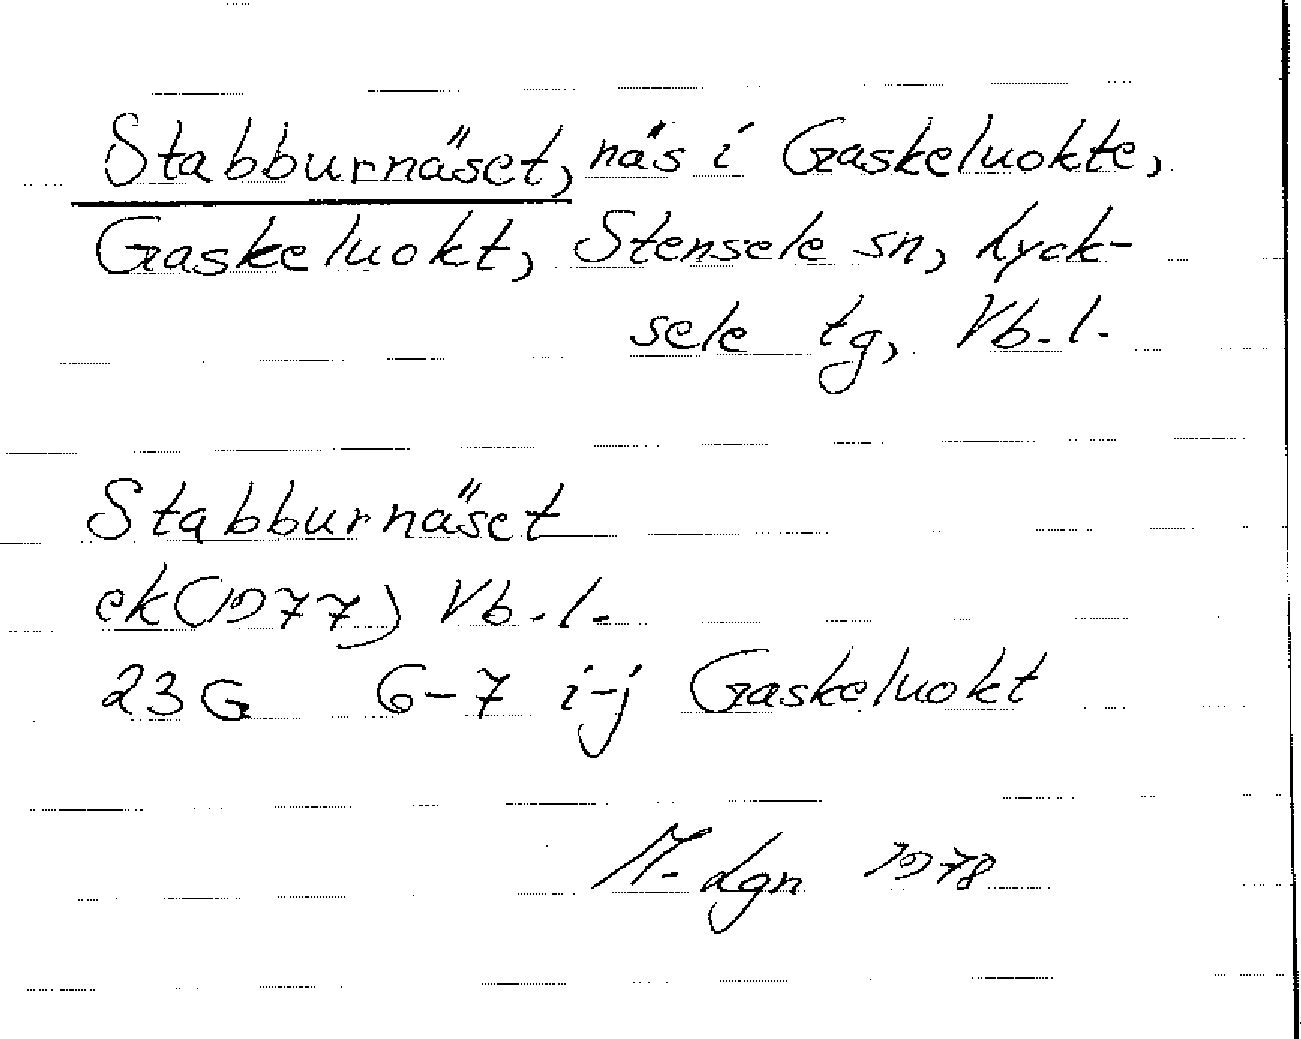 Stabburnäset, näs i Gaskeluokte,
Gaskeluokt, Stensele sn, Lyck-
sele tg, Vb.l.
Stabburnäset
ek(1977) Vb.l.
23G 6-7 i-j Gaskeluokt
M. Lgn 1978